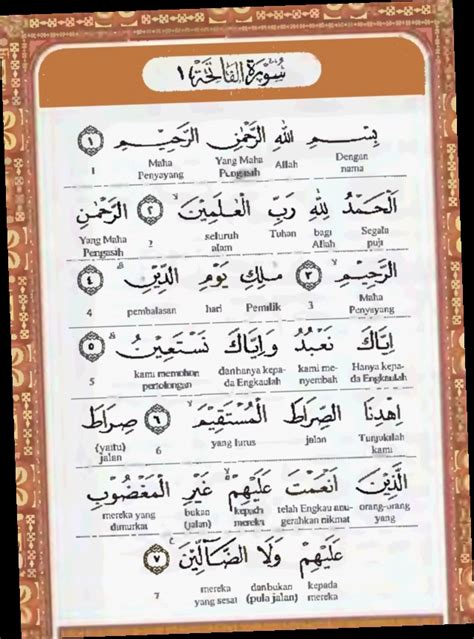 سُورَةُ الْفَاتِحَةِ ١
بِسْمِ اللهِ الرَّحْمٰنِ الرَّحِيْمِ ١
Dengan nama Allah Yang Maha Pengasih Maha Penyayang 1
اَلْحَمْدُ لِلّٰهِ رَبِّ الْعٰلَمِيْنَۙ ٢ الرَّحْمٰنِ
Segala puji bagi Allah Tuhan seluruh alam 2 Yang Maha Pengasih
الرَّحِيْمِۙ ٣ مٰلِكِ يَوْمِ الدِّيْنِۗ ٤
Maha Penyayang 3 Pemilik hari pembalasan 4
اِيَّاكَ نَعْبُدُ وَاِيَّاكَ نَسْتَعِيْنُۗ ٥
Hanya kepada Engkaulah kami menyembah danhanya kepada Engkaulah kami memohon pertolongan 5
اِهْدِنَا الصِّرَاطَ الْمُسْتَقِيْمَۙ ٦ صِرَاطَ
Tunjukilah kami jalan yang lurus 6 (yaitu) jalan
الَّذِيْنَ اَنْعَمْتَ عَلَيْهِمْۙ غَيْرِ الْمَغْضُوْبِ
orang-orang yang telah Engkau anugerahkan nikmat kepada mereka bukan (jalan) mereka yang dimurkai
عَلَيْهِمْ وَلَا الضَّاۤلِّيْنَ ٧
kepada mereka danbukan (pula jalan) mereka yang sesat 7